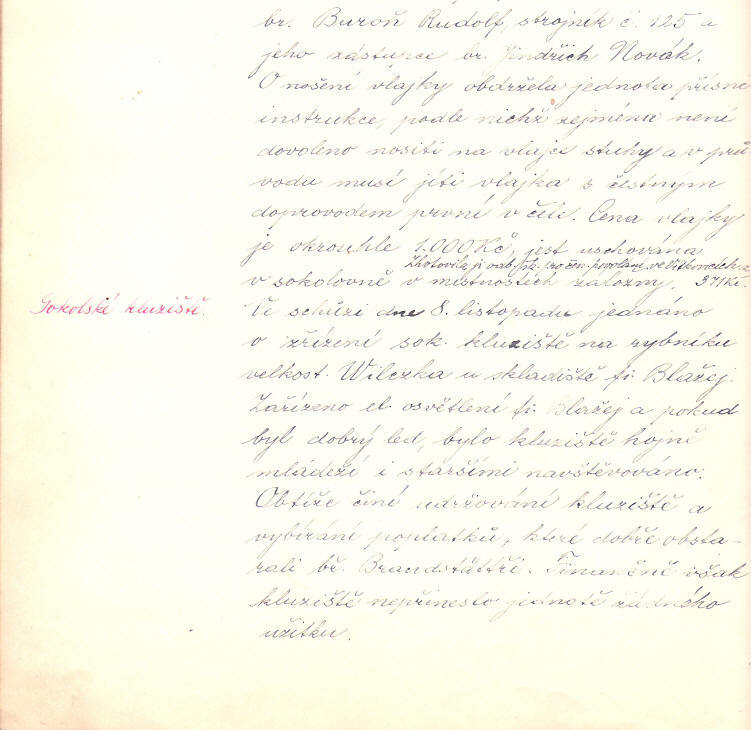 br. Buroň Rudolf, strojník č. 125 a
jeho zástupce br. Jindřich Novák.
O nošení vlajky obdržela jednota přísné
instrukce, podle nichž zejména není
dovoleno nositi na vlajce stuhy a v prů-
vodu musí jíti vlajka s čestným
doprovodem první, v čele. Cena vlajky
je okrouhle 1.000 Kč, jest uschována
Zhotovila ji odb. šk. pro žen. povolání ve Vítkovicích za
v sokolovně v místnostech záložny. 371 Kč.
Sokolské kluziště.
Ve schůzi dne 8. listopadu jednáno
o zřízení sok. kluziště na rybníku
velkost. Wilczka u skladiště fi. Blažej.
Zařízeno el. osvětlení fi. Blažej a pokud
byl dobrý led, bylo kluziště hojně
mládeží i staršími navštěvováno.
Obtíže činí udržování kluziště a
vybírání poplatků, které dobře obsta-
rali bř. Brandstätři. Finančně však
kluziště nepřineslo jednotě žádného
užitku.